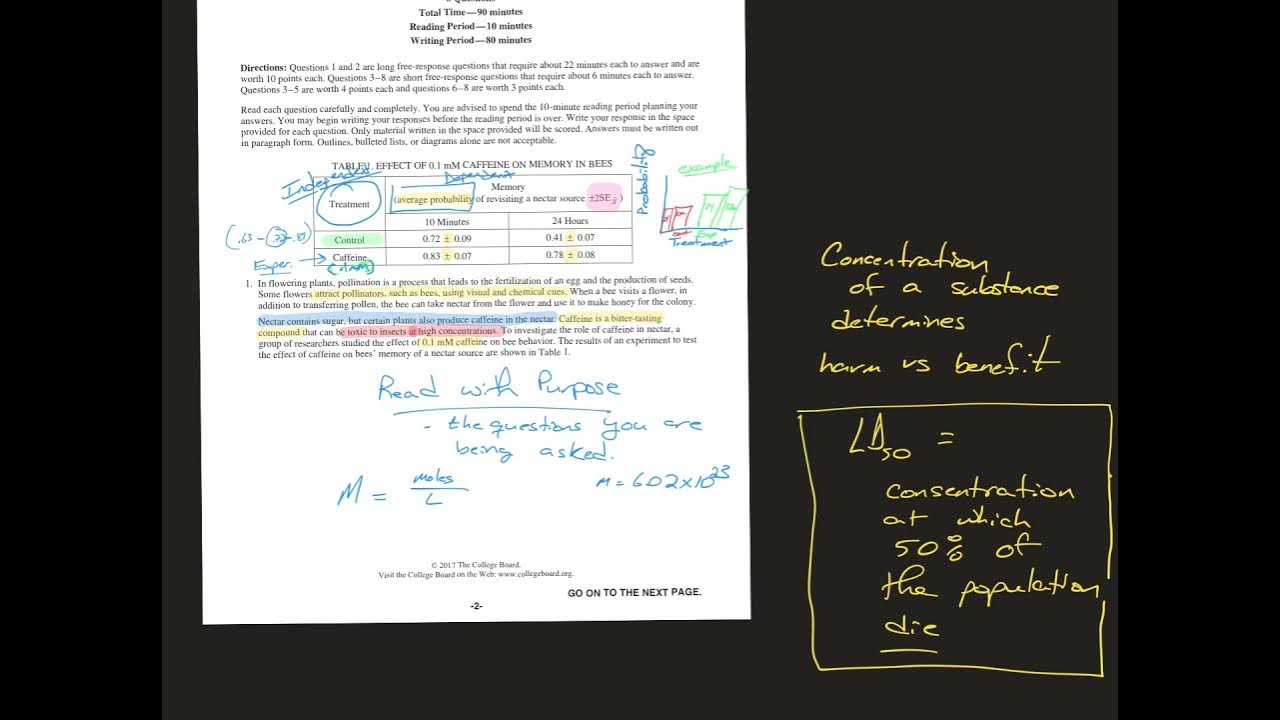 Total Time—90 minutes
Reading Period—10 minutes
Writing Period—80 minutes
Directions: Questions 1 and 2 are long free-response questions that require about 22 minutes each to answer and are
worth 10 points each. Questions 3–8 are short free-response questions that require about 6 minutes each to answer.
Questions 3–5 are worth 4 points each and questions 6–8 are worth 3 points each.
Read each question carefully and completely. You are advised to spend the 10-minute reading period planning your
answers. You may begin writing your responses before the reading period is over. Write your response in the space
provided for each question. Only material written in the space provided will be scored. Answers must be written out
in paragraph form. Outlines, bulleted lists, or diagrams alone are not acceptable.
TABLE 1. EFFECT OF 0.1 mM CAFFEINE ON MEMORY IN BEES
Independent
Dependent
Treatment
Memory
(average probability of revisiting a nectar source ±2SE x̄ )
10 Minutes 24 Hours
Control 0.72 ± 0.09 0.41 ± 0.07
Caffeine 0.83 ± 0.07 0.78 ± 0.08
(.63 - .72 - .81)
Exper.
(.1mM)
Probability
example
Cont Exp
Treatment
1. In flowering plants, pollination is a process that leads to the fertilization of an egg and the production of seeds.
Some flowers attract pollinators, such as bees, using visual and chemical cues. When a bee visits a flower, in
addition to transferring pollen, the bee can take nectar from the flower and use it to make honey for the colony.
Nectar contains sugar, but certain plants also produce caffeine in the nectar. Caffeine is a bitter-tasting
compound that can be toxic to insects at high concentrations. To investigate the role of caffeine in nectar, a
group of researchers studied the effect of 0.1 mM caffeine on bee behavior. The results of an experiment to test
the effect of caffeine on bees' memory of a nectar source are shown in Table 1.
Read with Purpose
- the questions you are
being asked.
M = moles
L
m = 6.02 x 10^23
© 2017 The College Board.
Visit the College Board on the Web: www.collegeboard.org.
GO ON TO THE NEXT PAGE.
-2-
Concentration
of a substance
determines
harm vs benefit
LD50 =
consentration
at which
50% of
the population
die